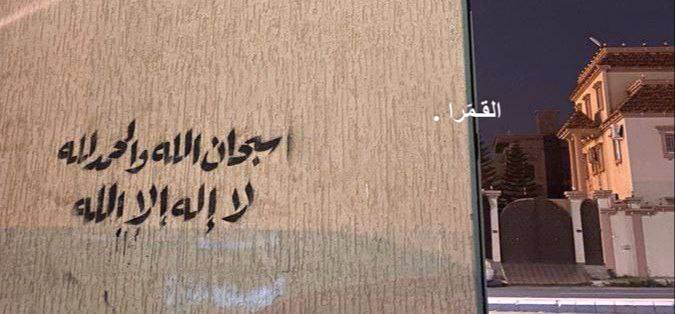 سبحان الله والحمد لله
لا إله إلا الله
القـمَرا .